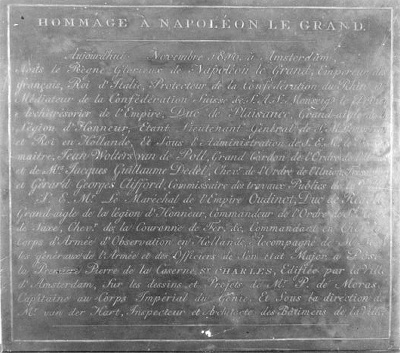 HOMMAGE À NAPOLÉON LE GRAND.
Aujourdhui Novembre à Amsterdam
Sous le Règne Glorieux de Napoléon le Grand, Empereur des
français, Roi d'Italie, Protecteur de la Confédération du Rhin
Médiateur de la Confédération Suisse
Architrésorier de l'Empire, Duc de Plaisance, Grand-aigle
Légion d'Honneur, étant Lieutenant Général de
et Roi en Hollande, Et Sous l'Administration de S.E.
maître, Jean Wolters van de Poll, Grand Cordon de l'Ordre
et de Mrs Jacques Guillaume Dedel, Chevr. de l'Ordre de l'Union,
et Gerard Georges Clifford, Commissaire du travaux Publics de
S. E. Mr. Le Marechal de l'Empire Oudinot, Duc de
Grand-aigle de la légion d'Honneur, Commandeur de l'Ordre de
de Saxe, Chevr. de la Couronne de Fer, Commandant en
Corps d'Armée d'Observation en Hollande, Accompagné de
les généraux de l'Armée et des Officiers de Son etat Major, a
la Pierre de la Caserne St. CHARLES, Edifiée par la Ville
d'Amsterdam, Sur les dessins et Projets de Mr. P. de Moras
Capitaine au Corps Impérial du Génie, Et Sous la direction de
Mr. van der Hart, Inspecteur et Architecte des Bâtimens de la